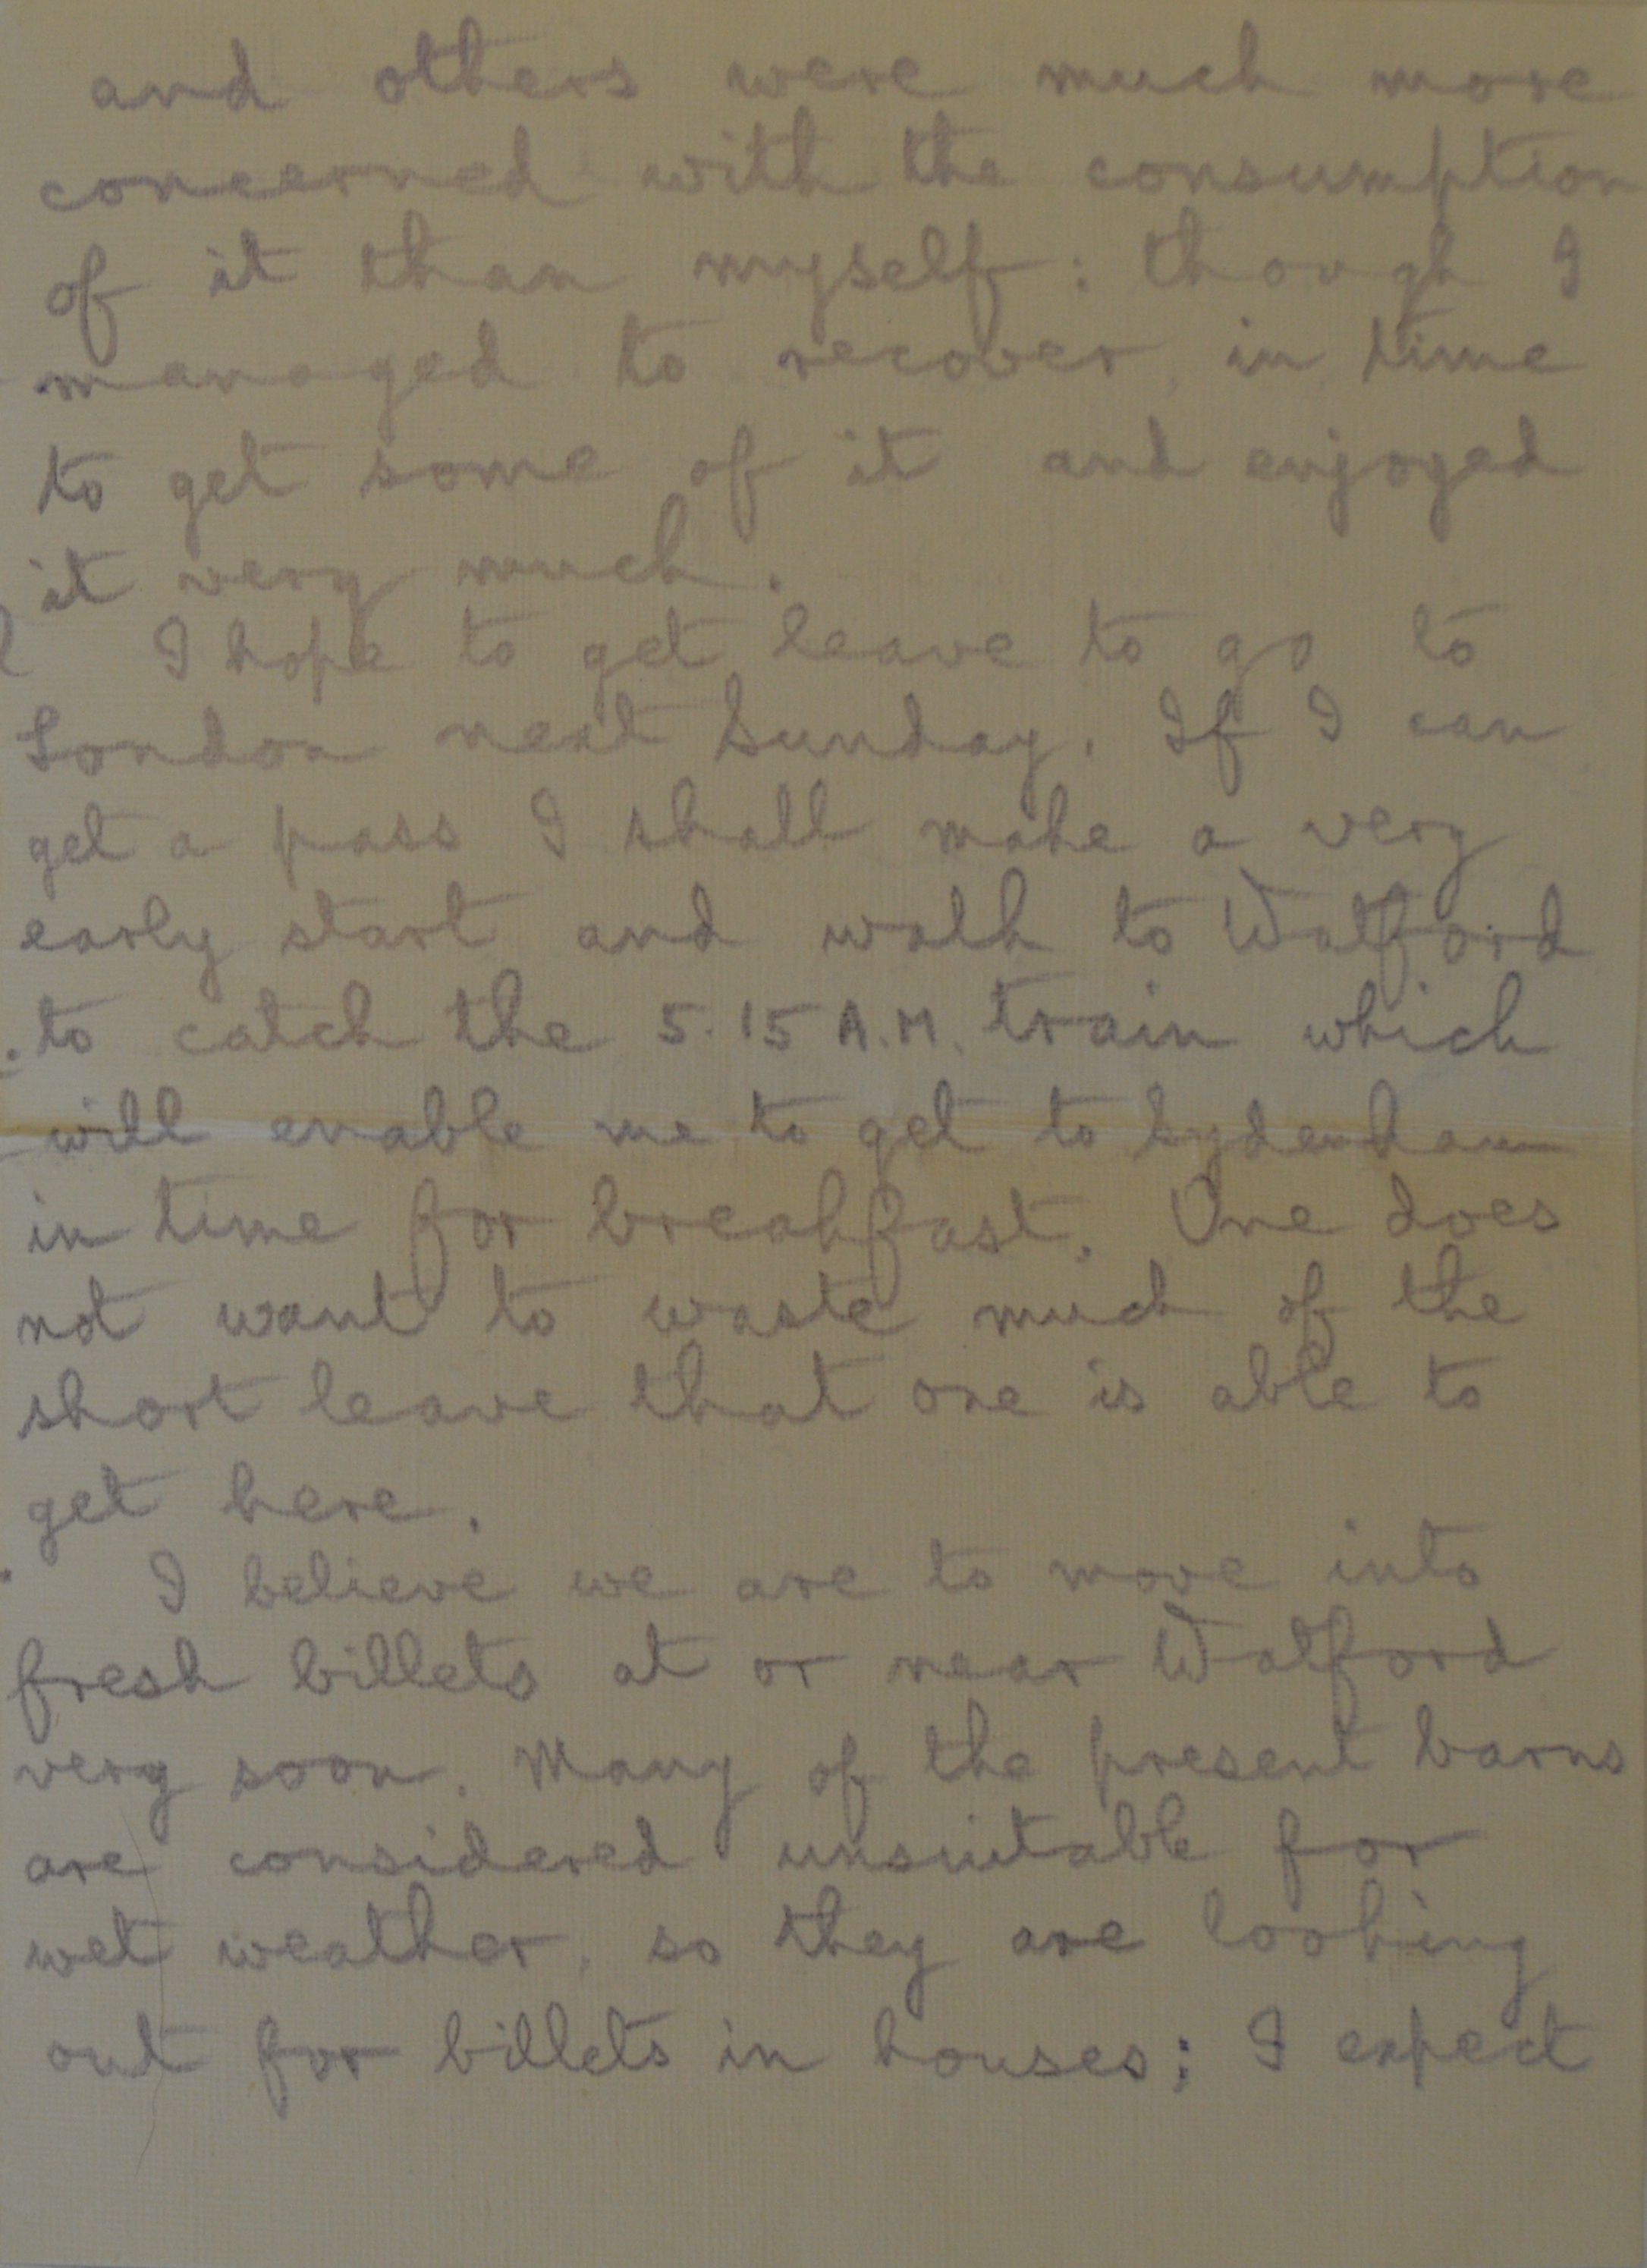 and others were much more
concerned with the consumption
of it than myself: though I
managed to recover in time
to get some of it and enjoyed
it very much.
I hope to get leave to go to
London next Sunday. If I can
get a pass I shall make a very
early start and walk to Watford
to catch the 5.15 A.M. train which
will enable me to get to Sydenham
in time for breakfast. One does
not want to waste much of the
short leave that one is able to
get here.
I believe we are to move into
fresh billets at or near Watford
very soon. Many of the present barns
are considered unsuitable for
wet weather, so they are looking
out for billets in houses; I expect